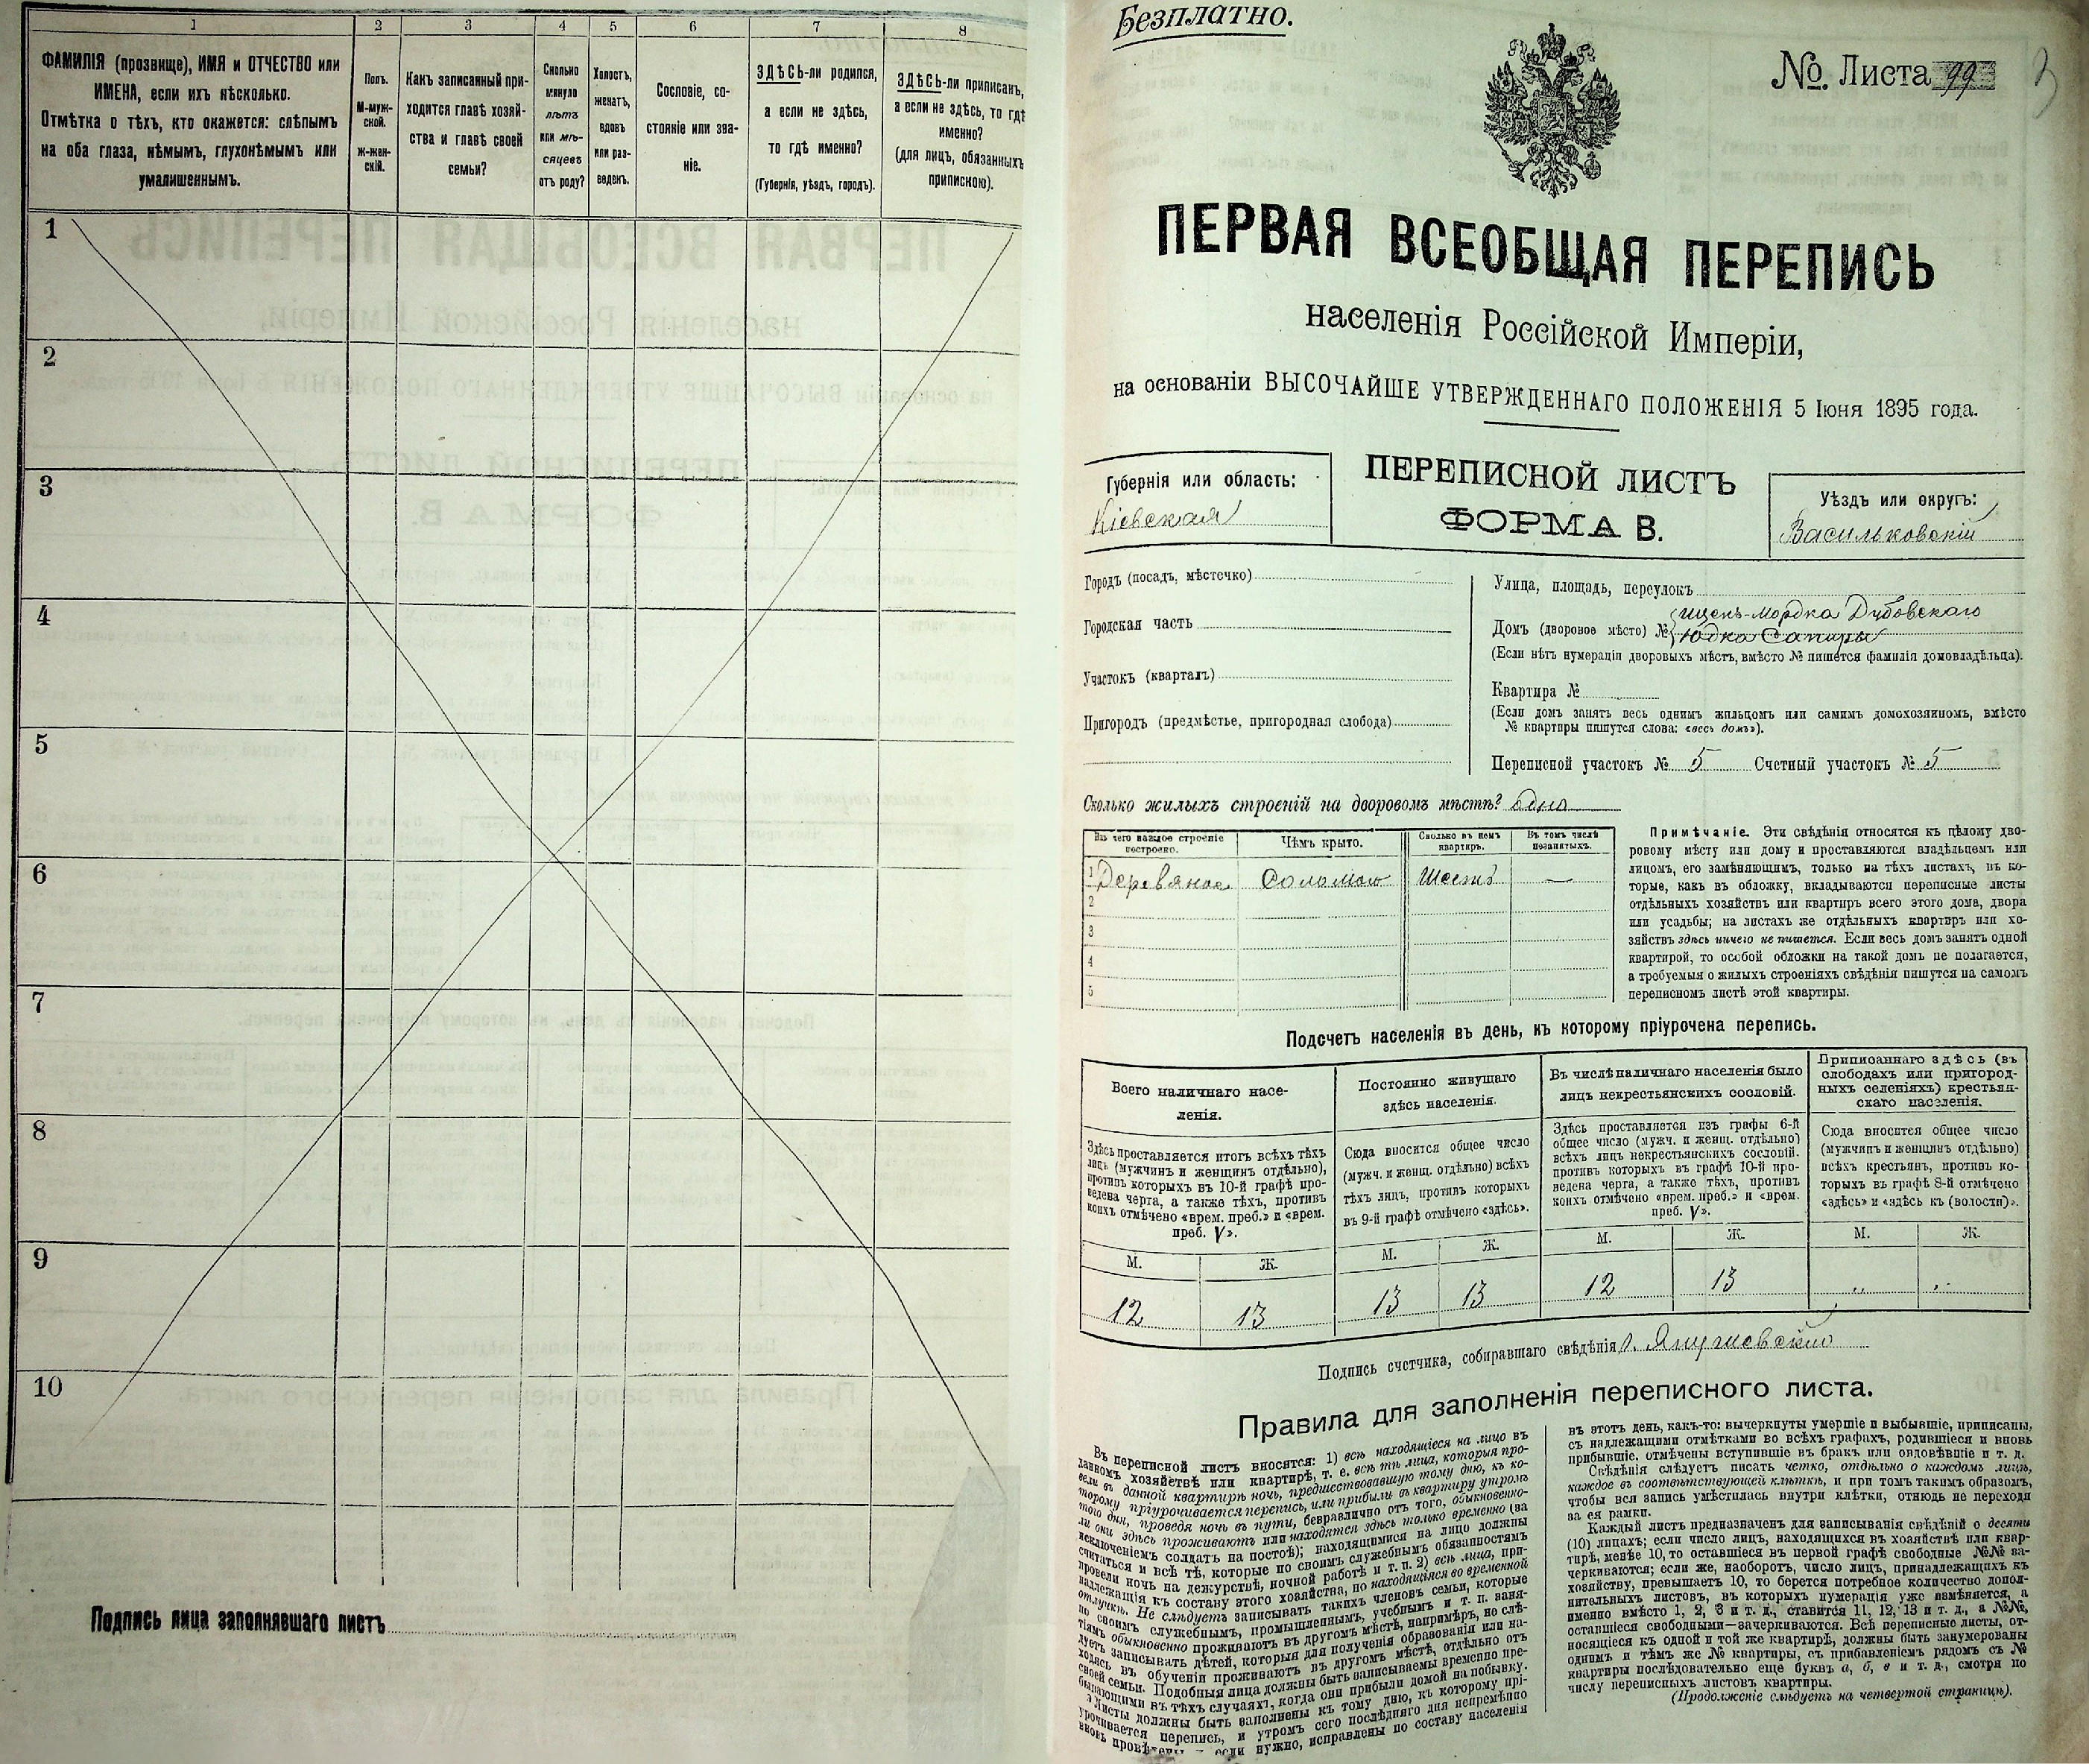 1 2 3 4 5 6 7 8
ФАМИЛІЯ (прозвище), ИМЯ и ОТЧЕСТВО или
ИМЕНА, если ихъ нѣсколько.
Отмѣтка о тѣхъ, кто окажется: слѣпымъ
на оба глаза, нѣмымъ, глухонѣмымъ или
умалишеннымъ.
Полъ.
М-муж-
ской.
Ж-жен-
скій.
Какъ записанный при-
ходится главѣ хозяй-
ства и главѣ своей
семьи?
Сколько
минуло
лѣтъ
или мѣ-
сяцевъ
отъ роду?
Холостъ,
женатъ,
вдовъ
или раз-
веденъ.
Сословіе, со-
стояніе или зва-
ніе.
ЗДѢСЬ-ли родился,
а если не здѣсь,
то гдѣ именно?
(Губернія, уѣздъ, городъ).
ЗДѢСЬ-ли приписанъ,
а если не здѣсь, то гдѣ
именно?
(для лицъ, обязанныхъ
припискою).
1
2
3
4
5
6
7
8
9
10
Подпись лица заполнявшаго листъ
Безплатно.
№. Листа 99
3
ПЕРВАЯ ВСЕОБЩАЯ ПЕРЕПИСЬ
населенія Россійской Имперіи,
на основаніи ВЫСОЧАЙШЕ УТВЕРЖДЕННАГО ПОЛОЖЕНІЯ 5 Іюня 1895 года.
Губернія или область:
Кіевская
ПЕРЕПИСНОЙ ЛИСТЪ
ФОРМА В.
Уѣздъ или округъ:
Васильковскій
Городъ (посадъ, мѣстечко)
Городская часть
Участокъ (кварталъ)
Пригородъ (предмѣстье, пригородная слобода)
Улица, площадь, переулокъ
Мордка Дубовскаго
Домъ (дворовое мѣсто) № Юдка Сапиры
(Если нѣтъ нумераціи дворовыхъ мѣстъ, вмѣсто № пишется фамилія домовладѣльца).
Квартира №
(Если домъ занятъ весь однимъ жильцомъ или самимъ домохозяиномъ, вмѣсто
№ квартиры пишутся слова: «весь домъ»).
Переписной участокъ № 5 Счетный участокъ № 5
Сколько жилыхъ строеній на дворовомъ мѣстѣ? одно
Изъ чего каждое строеніе
построено.
Чѣмъ крыто.
Сколько въ немъ
квартиръ.
Въ томъ числѣ
незанятыхъ.
1 Деревяное Соломою Шесть —
2
3
4
5
Примѣчаніе. Эти свѣдѣнія относятся къ цѣлому дво-
ровому мѣсту или дому и проставляются владѣльцемъ или
лицомъ, его замѣняющимъ, только на тѣхъ листахъ, въ ко-
торые, какъ въ обложку, вкладываются переписные листы
отдѣльныхъ хозяйствъ или квартиръ всего этого дома, двора
или усадьбы; на листахъ же отдѣльныхъ квартиръ или хо-
зяйствъ здѣсь ничего не пишется. Если весь домъ занятъ одной
квартирой, то особой обложки на такой домъ не полагается,
а требуемыя о жилыхъ строеніяхъ свѣдѣнія пишутся на самомъ
переписномъ листѣ этой квартиры.
Подсчетъ населенія въ день, къ которому пріурочена перепись.
Всего наличнаго насе-
ленія.
Здѣсь проставляется итогъ всѣхъ тѣхъ
лицъ (мужчинъ и женщинъ отдѣльно),
противъ которыхъ въ 10-й графѣ про-
ведена черта, а также тѣхъ, противъ
коихъ отмѣчено «врем. преб.» и «врем.
преб. V».
М. Ж.
12 13
Постоянно живущаго
здѣсь населенія.
Сюда вносится общее число
(мужч. и женщ. отдѣльно) всѣхъ
тѣхъ лицъ, противъ которыхъ
въ 9-й графѣ отмѣчено «здѣсь».
М. Ж.
13 13
Въ числѣ наличнаго населенія было
лицъ некрестьянскихъ сословій.
Здѣсь проставляется изъ графы 6-й
общее число (мужч. и женщ. отдѣльно)
всѣхъ лицъ некрестьянскихъ сословій.
противъ которыхъ въ графѣ 10-й про-
ведена черта, а также тѣхъ, противъ
коихъ отмѣчено «врем. преб.» и «врем.
преб. V».
М. Ж.
12 13
Приписаннаго здѣсь (въ
слободахъ или пригород-
ныхъ селеніяхъ) крестьян-
скаго населенія.
Сюда вносится общее число
(мужчинъ и женщинъ отдѣльно)
всѣхъ крестьянъ, противъ ко-
торыхъ въ графѣ 8-й отмѣчено
«здѣсь» и «здѣсь къ (волости)».
М. Ж.
„ „
Подпись счетчика, собиравшаго свѣдѣнія
Правила для заполненія переписного листа.
Въ переписной листъ вносятся: 1) всѣ находящіеся на лицо въ
данномъ хозяйствѣ или квартирѣ, т. е. всѣ тѣ лица, которыя про-
вели въ данной квартирѣ ночь, предшествовавшую тому дню, къ ко-
торому пріурочивается перепись, или прибыли въ квартиру утромъ
того дня, проведя ночь въ пути, безразлично отъ того, обыкновенно-
ли они здѣсь проживаютъ или находятся здѣсь только временно (за
исключеніемъ солдатъ на постоѣ); находящимися на лицо должны
считаться и всѣ тѣ, которые по своимъ служебнымъ обязанностямъ
провели ночь на дежурствѣ, ночной работѣ и т. п. 2) всѣ лица, при-
надлежащія къ составу этого хозяйства, но находящіяся во временной
отлучкѣ. Не слѣдуетъ записывать такихъ членовъ семьи, которые
по своимъ служебнымъ, промышленнымъ, учебнымъ и т. п. заня-
тіямъ обыкновенно проживаютъ въ другомъ мѣстѣ, напримѣръ, не слѣ-
дуетъ записывать дѣтей, которыя для полученія образованія или на-
ходясь въ обученіи проживаютъ въ другомъ мѣстѣ, отдѣльно отъ
своей семьи. Подобныя лица должны быть записываемы временно пре-
бывающими въ тѣхъ случаяхъ, когда они прибыли домой на побывку.
Листы должны быть заполнены къ тому дню, къ которому прі-
урочивается перепись, и утромъ сего послѣдняго дня непремѣнно
вновь провѣрены и если нужно, исправлены по составу населенія
въ этотъ день, какъ-то: вычеркнуты умершіе и выбывшіе, приписаны,
съ надлежащими отмѣтками во всѣхъ графахъ, родившіеся и вновь
прибывшіе. отмѣчены вступившіе въ бракъ или овдовѣвшіе и т. д.
Свѣдѣнія слѣдуетъ писать четко, отдѣльно о каждомъ лицѣ,
каждое въ соотвѣтствующей клѣткѣ, и при томъ такимъ образомъ,
чтобы вся запись умѣстилась внутри клѣтки, отнюдь не переходя
за ея рамки.
Каждый листъ предназначенъ для записыванія свѣдѣній о десяти
(10) лицахъ; если число лицъ, находящихся въ хозяйствѣ или квар-
тирѣ, менѣе 10, то оставшіеся въ первой графѣ свободные №№ за-
черкиваются; если же, наоборотъ, число лицъ, принадлежащихъ къ
хозяйству, превышаетъ 10, то берется потребное количество допол-
нительныхъ листовъ, въ которыхъ нумерація уже измѣняется, а
именно вмѣсто 1, 2, 3 и т. д., ставится 11, 12, 13 и т. д., а №№,
оставшіеся свободными—зачеркиваются. Всѣ переписные листы, от-
носящіеся къ одной и той же квартирѣ, должны быть занумерованы
однимъ и тѣмъ же № квартиры, съ прибавленіемъ рядомъ съ №
квартиры послѣдовательно еще буквъ а, б, в и т. д., смотря по
числу переписныхъ листовъ квартиры.
(Продолженіе слѣдуетъ на четвертой страницѣ).